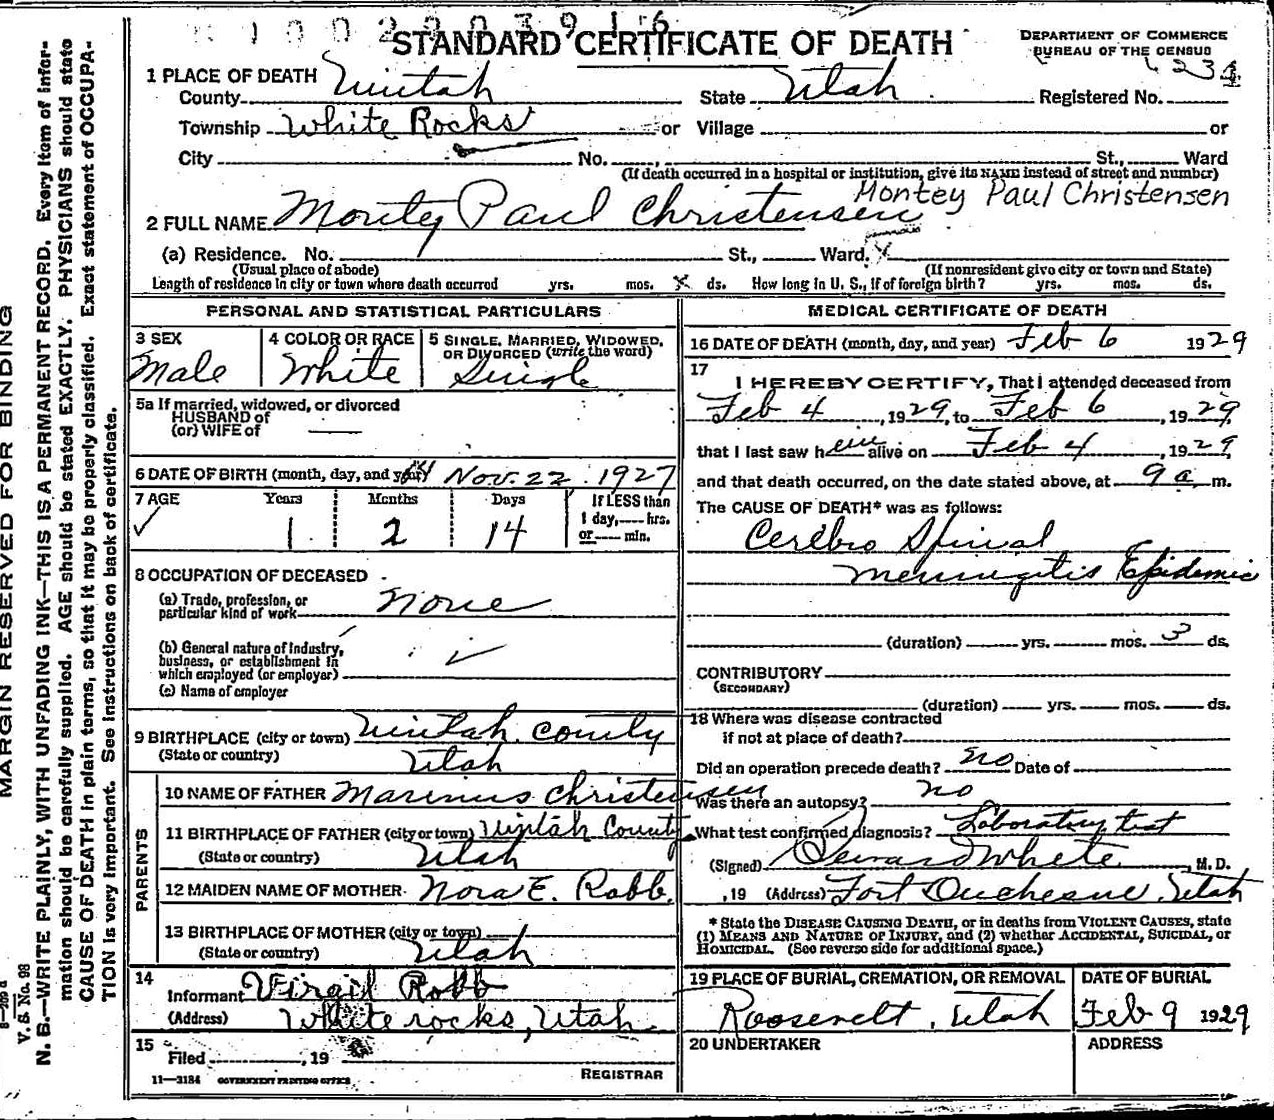 STANDARD CERTIFICATE OF DEATH
DEPARTMENT OF COMMERCE
BUREAU OF THE CENSUS
1 PLACE OF DEATH
County Uintah State Utah Registered No.
Township White Rocks or Village or
City No. , St., Ward
(If death occurred in a hospital or institution, give its NAME instead of street and number)
Montey Paul Christensen
2 FULL NAME Montey Paul Christensen
(a) Residence. No. St., Ward.
(Usual place of abode) (If nonresident give city or town and State)
Length of residence in city or town where death occurred yrs. mos. ds. How long in U. S., if of foreign birth? yrs. mos. ds.
PERSONAL AND STATISTICAL PARTICULARS
3 SEX
Male
4 COLOR OR RACE
White
5 SINGLE, MARRIED, WIDOWED,
OR DIVORCED (write the word)
Single
5a If married, widowed, or divorced
HUSBAND of
(or) WIFE of
6 DATE OF BIRTH (month, day, and year) Nov. 22 1927
7 AGE Years Months Days If LESS than
1 2 14 1 day, hrs.
or min.
8 OCCUPATION OF DECEASED
(a) Trade, profession, or
particular kind of work None
(b) General nature of Industry,
business, or establishment in
which employed (or employer)
(c) Name of employer
9 BIRTHPLACE (city or town) Uintah County
(State or country) Utah
PARENTS
10 NAME OF FATHER Marinus Christensen
11 BIRTHPLACE OF FATHER (city or town) Uintah County
(State or country) Utah
12 MAIDEN NAME OF MOTHER Nora E. Robb
13 BIRTHPLACE OF MOTHER (city or town)
(State or country) Utah
14
Informant Virgil Robb
(Address) White rocks, Utah
15
Filed , 19
REGISTRAR
11—3184 GOVERNMENT PRINTING OFFICE
MEDICAL CERTIFICATE OF DEATH
16 DATE OF DEATH (month, day, and year) Feb 6 1929
17
I HEREBY CERTIFY, That I attended deceased from
Feb 4, 1929, to Feb 6, 1929
that I last saw him alive on Feb 4, 1929
and that death occurred, on the date stated above, at 9 a m.
The CAUSE OF DEATH* was as follows:
Cerebro Spinal
Meningitis Epidemic
(duration) yrs. mos. 3 ds.
CONTRIBUTORY
(SECONDARY)
(duration) yrs. mos. ds.
18 Where was disease contracted
if not at place of death?
Did an operation precede death? no Date of
Was there an autopsy? no
What test confirmed diagnosis? Laboratory test
(Signed) White, M. D.
, 19 (Address) Fort Duchesne, Utah
* State the DISEASE CAUSING DEATH, or in deaths from VIOLENT CAUSES, state
(1) MEANS AND NATURE OF INJURY, and (2) whether ACCIDENTAL, SUICIDAL, or
HOMICIDAL. (See reverse side for additional space.)
19 PLACE OF BURIAL, CREMATION, OR REMOVAL
Roosevelt, Utah
DATE OF BURIAL
Feb 9 1929
20 UNDERTAKER
ADDRESS
MARGIN RESERVED FOR BINDING
V. S. No. 98
N. B.—WRITE PLAINLY, WITH UNFADING INK—THIS IS A PERMANENT RECORD. Every item of infor-
mation should be carefully supplied. AGE should be stated EXACTLY. PHYSICIANS should state
CAUSE OF DEATH in plain terms, so that it may be properly classified. Exact statement of OCCUPA-
TION is very important. See instructions on back of certificate.